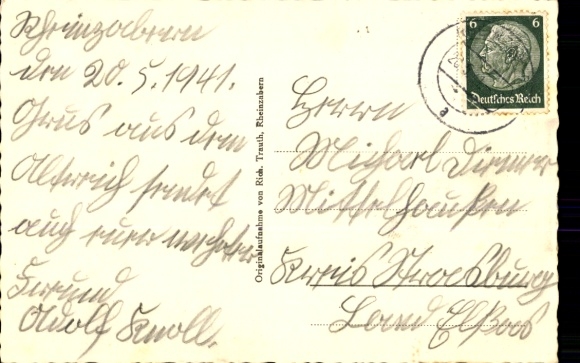 Rheinzabern
den 20.5.1941.
Grus aus dem
Altreich sendet
auch euer
Freund
Adolf Knoll.
Originalaufnahme von Rich. Trauth, Rheinzabern
6 6
Deutsches Reich
Herrn
Michael Diemer
Mittelhausen
Kreis Strasburg
Land Elsass